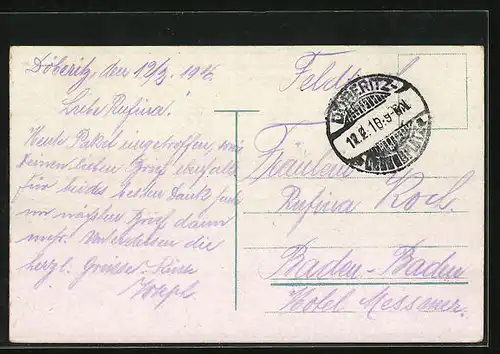 Döberitz, den 12/2. 1916
Liebe Rufina!
Heute Paket eingetroffen, wie
deinen lieben Brief ebenfalls
für beides besten Dank
im nächsten Brief dann
mehr. Unterdessen die
herzl. Grüsse
Joseph
DÖBERITZ-
12.2.16.
Fräulein
Rufina Koch.
Baden-Baden
Hotel Messmer.